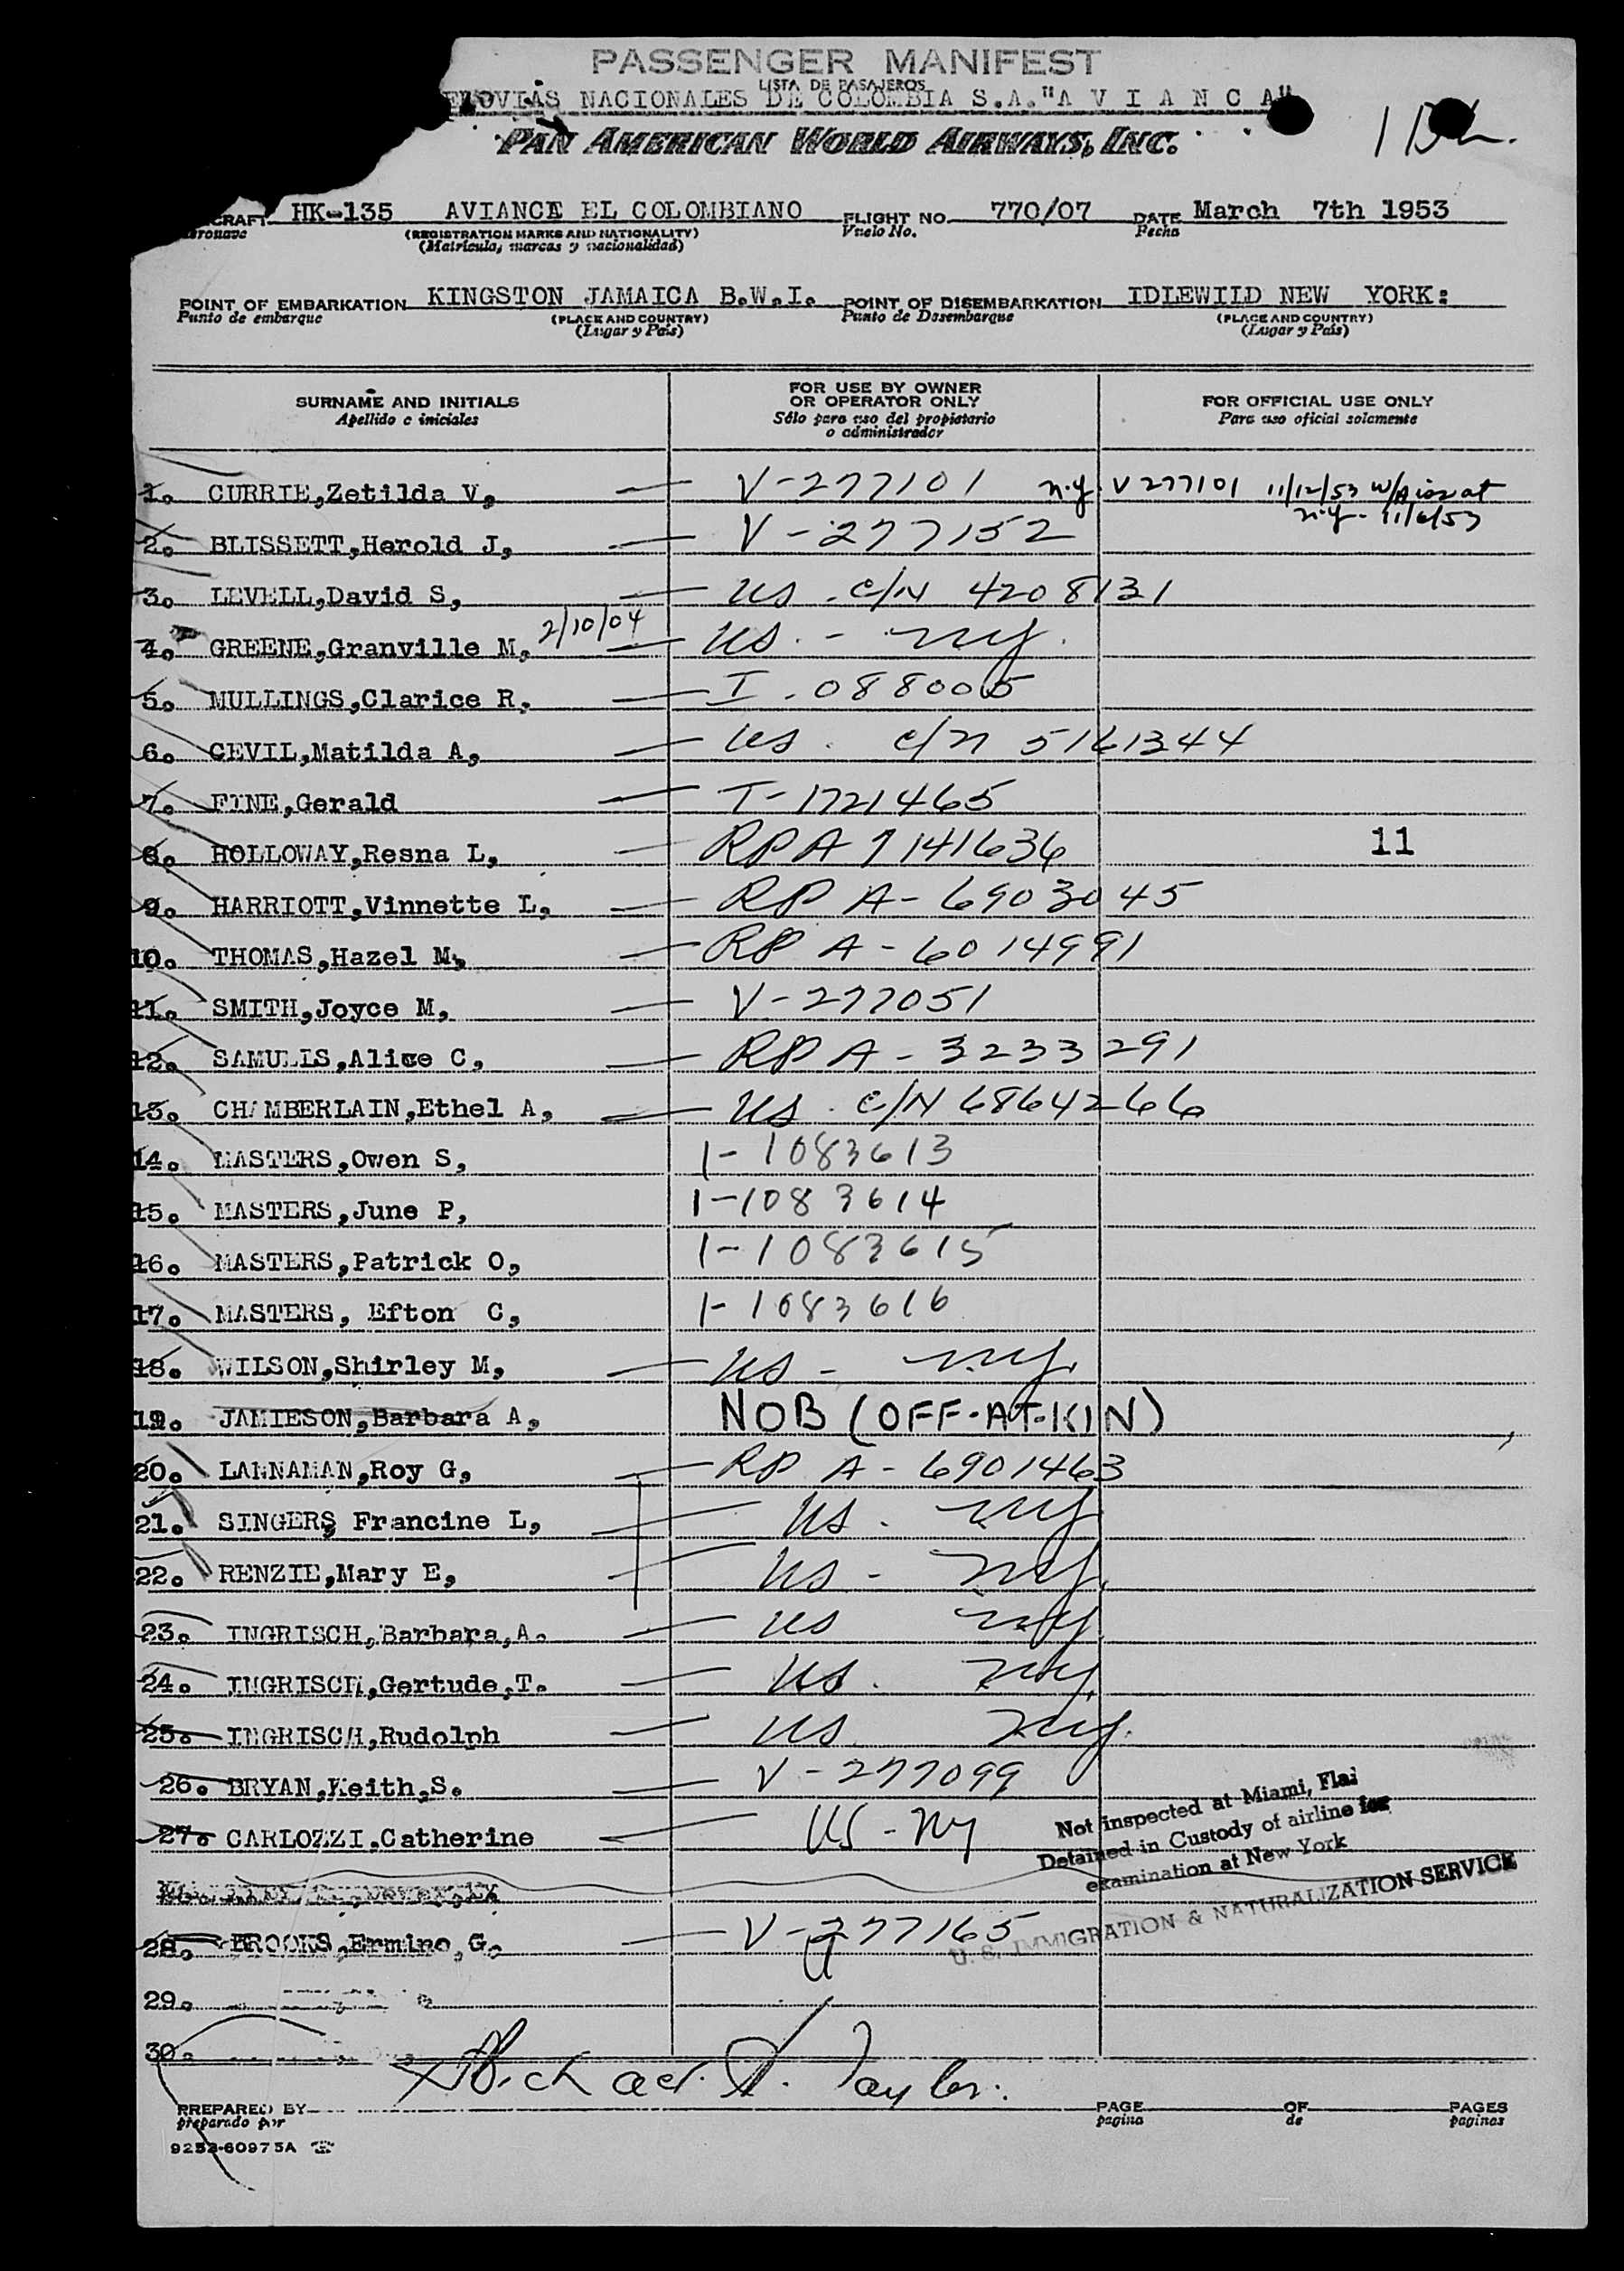 PASSENGER MANIFEST
LISTA DE PASAJEROS
OVIAS NACIONALES DE COLOMBIA S.A. "A V I A N C A"
PAN AMERICAN WORLD AIRWAYS, INC.
CRAFT HK-135 AVIANCE EL COLOMBIANO FLIGHT NO. 770/07 DATE March 7th 1953
eronave (REGISTRATION MARKS AND NATIONALITY) Vuelo No. Fecha
(Matricula, marcas y nacionalidad)
POINT OF EMBARKATION KINGSTON JAMAICA B.W.I. POINT OF DISEMBARKATION IDLEWILD NEW YORK:
Punto de embarque (PLACE AND COUNTRY) Punto de Desembarque (PLACE AND COUNTRY)
(Lugar y País) (Lugar y País)
SURNAME AND INITIALS
Apellido e iniciales
FOR USE BY OWNER
OR OPERATOR ONLY
Sólo para uso del propietario
o administrador
FOR OFFICIAL USE ONLY
Para uso oficial solamente
1. CURRIE,Zetilda V, V-277101 n.y. V 277101 11/12/53
n.y. 11/6/53
2. BLISSETT,Herold J, V-277152
3. LEVELL,David S, US. C/N 4208131
4. GREENE,Granville M, 2/10/04 US. - ny.
5. MULLINGS,Clarice R, I-088005
6. CEVIL,Matilda A, US. C/N 5161344
7. FINE,Gerald T-1721465
8. HOLLOWAY,Resna L, RP A 7141636
11
9. HARRIOTT,Vinnette L, RP A-6903045
10. THOMAS,Hazel M, RP A-6014991
11. SMITH,Joyce M, V-277051
12. SAMULIS,Alice C, RP A-3233291
13. CHAMBERLAIN,Ethel A, US. C/N 6864266
14. MASTERS,Owen S, 1-1083613
15. MASTERS,June P, 1-1083614
16. MASTERS,Patrick O, 1-1083615
17. MASTERS, Efton C, 1-1083616
18. WILSON,Shirley M, US - ny.
19. JAMIESON,Barbara A, NOB (OFF-AT-KIN)
20. LANNAMAN,Roy G, RP A-6901463
21. SINGERS Francine L, US. ny
22. RENZIE,Mary E, US - ny.
23. INGRISCH,Barbara,A. US ny.
24. INGRISCH,Gertude,T. US. ny.
25. INGRISCH,Rudolph US ny.
26. BRYAN,Keith,S. V-277099
27. CARLOZZI,Catherine US - NY
Not inspected at Miami, Fla.
Detained in Custody of airline for
examination at New York
U. S. IMMIGRATION & NATURALIZATION SERVICE
28. BROOKS,Ermine,G. V-277165
29.
30.
Michael A. Taylor.
PREPARED BY PAGE OF PAGES
preparado por pagina de paginas
9252-60975A